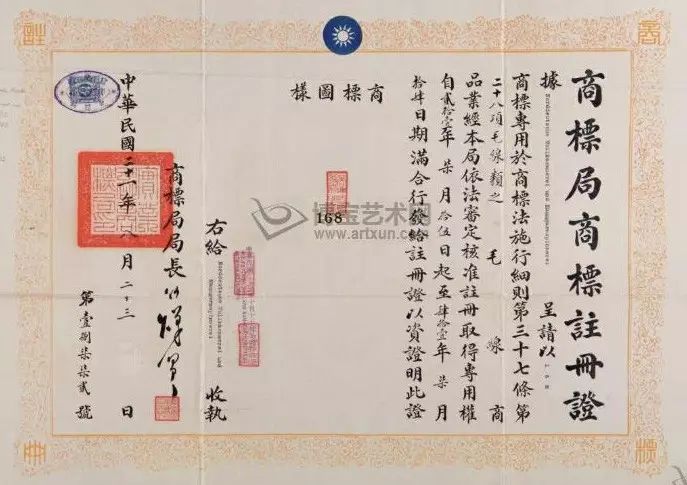 商標局商標註冊證
據 呈請以 168
商標專用於商標法施行細則第三十七條第
二十八項毛線類之毛線商
品業經本局依法審定核准註冊取得專用權
自貳拾壹年柒月拾伍日起至肆拾壹年柒月
拾肆日期滿合行發給註冊證以資證明此證
商標圖樣
168
右給 收執
商標局局長
中華民國二十一年八月二十三日
第壹捌柒柒貳號
博宝艺术网
www.artxun.com